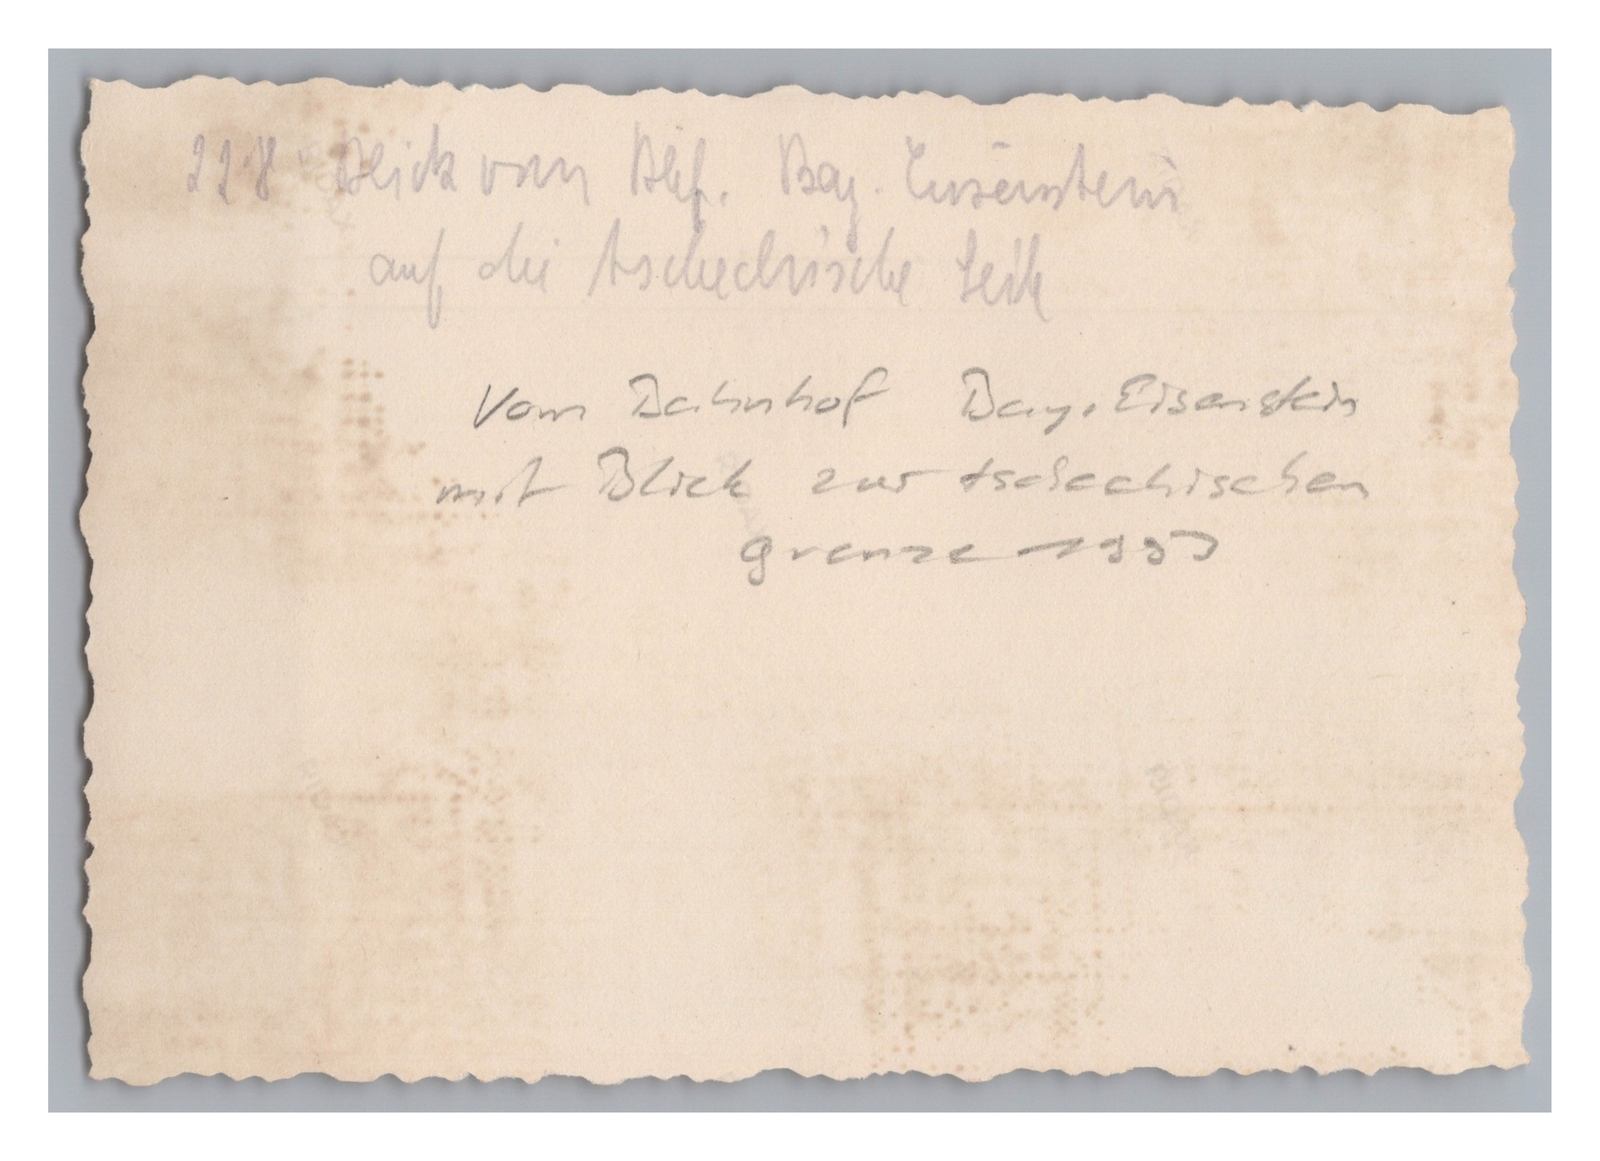 228 Blick vom Bhf. Bay. Eisenstein
auf die tschechische Seite
Vom Bahnhof Bay. Eisenstein
mit Blick zur tschechischen
Grenze 1953